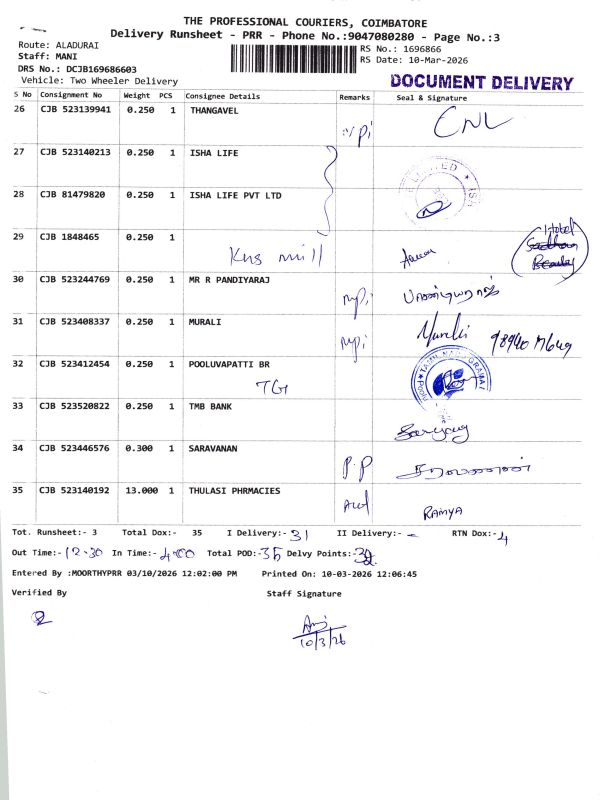 THE PROFESSIONAL COURIERS, COIMBATORE
Delivery Runsheet - PRR - Phone No.:9047080280 - Page No.:3
Route: ALADURAI
RS No.: 1696866
Staff: MANI
RS Date: 10-Mar-2026
DRS No.: DCJB169686603
Vehicle: Two Wheeler Delivery
DOCUMENT DELIVERY
S No Consignment No Weight PCS Consignee Details Remarks Seal & Signature
26 CJB 523139941 0.250 1 THANGAVEL CNL
27 CJB 523140213 0.250 1 ISHA LIFE
28 CJB 81479820 0.250 1 ISHA LIFE PVT LTD
29 CJB 1848465 0.250 1 Kns mill Hotel
30 CJB 523244769 0.250 1 MR R PANDIYARAJ பாண்டியராஜ்
31 CJB 523408337 0.250 1 MURALI Murali
32 CJB 523412454 0.250 1 POOLUVAPATTI BR TG
33 CJB 523520822 0.250 1 TMB BANK
34 CJB 523446576 0.300 1 SARAVANAN P.P சரவணன்
35 CJB 523140192 13.000 1 THULASI PHRMACIES RAMYA
Tot. Runsheet:- 3 Total Dox:- 35 I Delivery:- 31 II Delivery:- - RTN Dox:- 4
Out Time:- 12.30 In Time:- 4.00 Total POD:- 35 Delvy Points:-
Entered By :MOORTHYPRR 03/10/2026 12:02:00 PM Printed On: 10-03-2026 12:06:45
Verified By Staff Signature
10/3/26